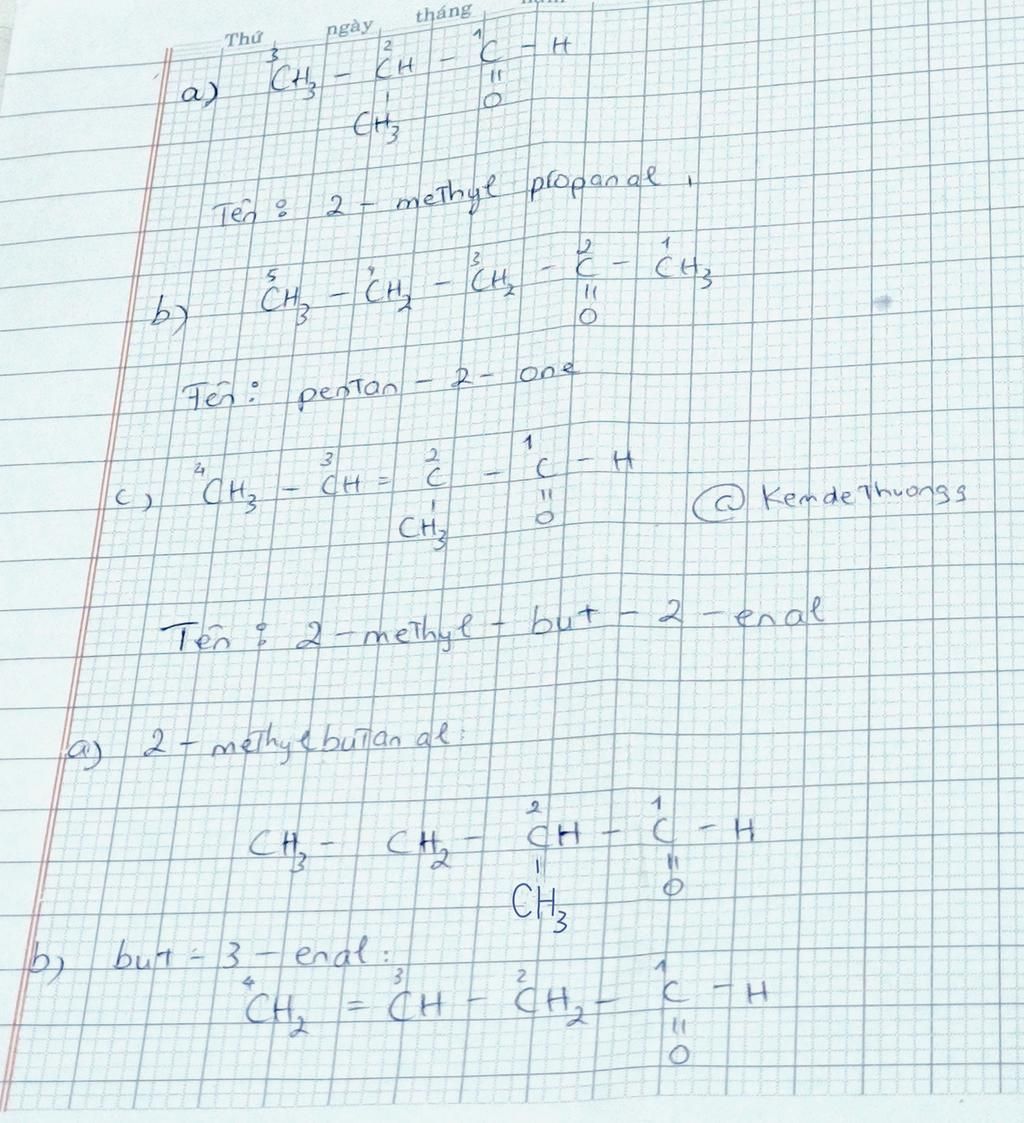 Thứ ngày tháng
a) ³CH₃ - ²CH - ¹C - H
CH₃ O
Tên : 2 - methyl propanal .
b) ⁵CH₃ - ⁴CH₂ - ³CH₂ - ²C - ¹CH₃
O
Tên : pentan - 2 - one
c) ⁴CH₃ - ³CH = ²C - ¹C - H
CH₃ O
@ Kemdethuongs
Tên : 2 - methyl - but - 2 - enal
a) 2 - methylbutanal :
CH₃ - CH₂ - ²CH - ¹C - H
CH₃ O
b) but - 3 - enal :
⁴CH₂ = ³CH - ²CH₂ - ¹C - H
O